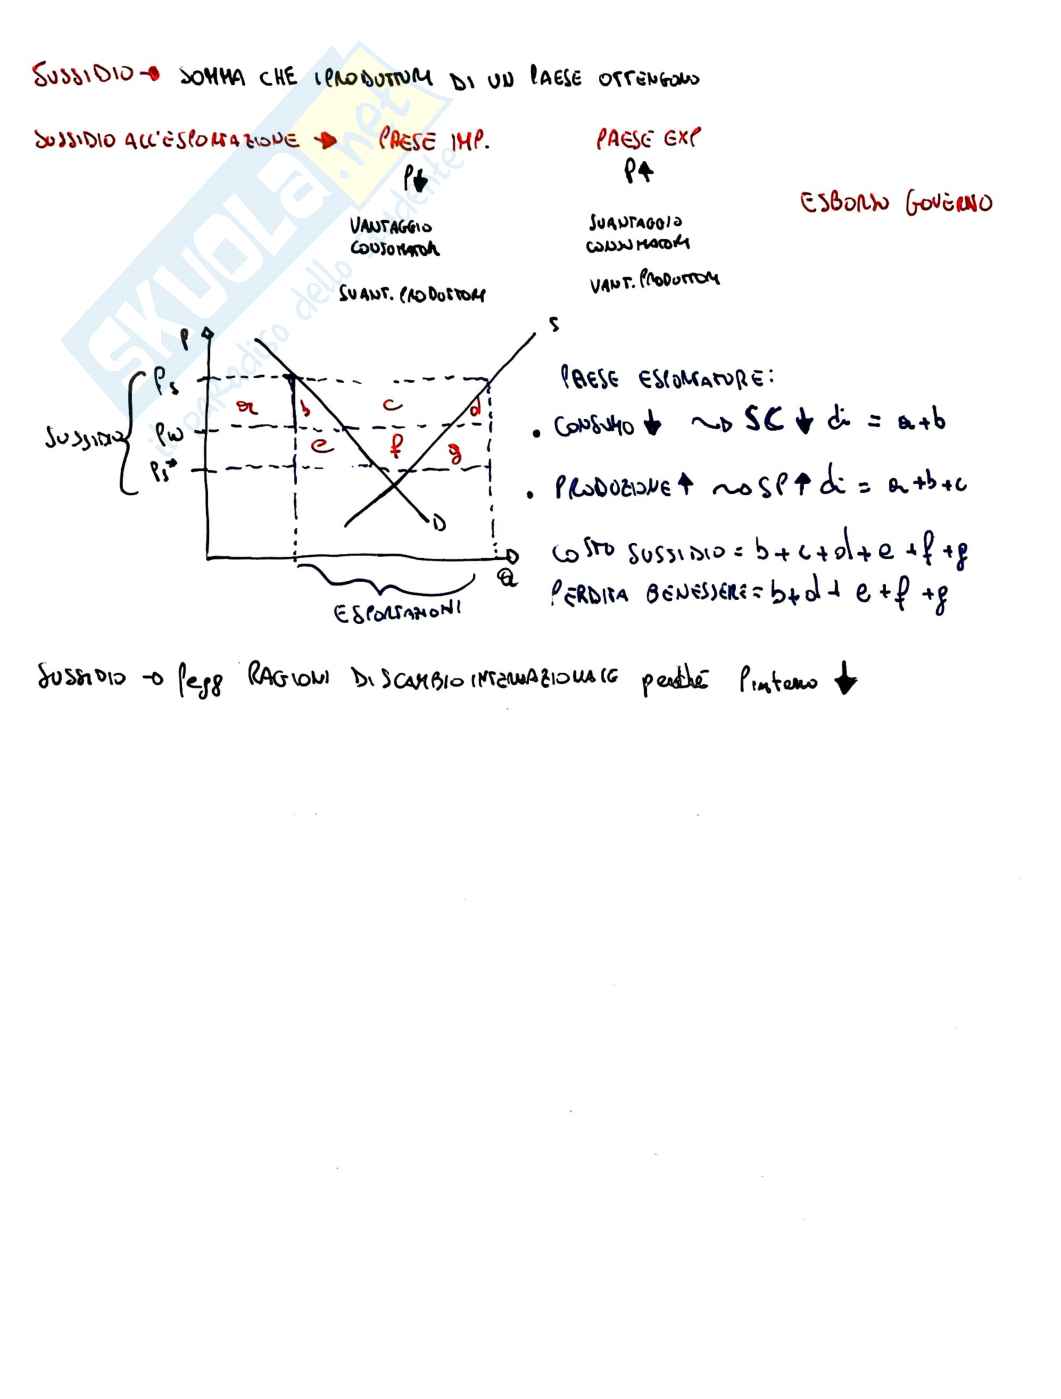 SUSSIDIO → SOMMA CHE I PRODUTTORI DI UN PAESE OTTENGONO
SUSSIDIO ALL'ESPORTAZIONE → PAESE IMP. PAESE EXP
P↓ P↑
ESBORSO GOVERNO
VANTAGGIO CONSUMATOR
SVANTAGGIO CONSUMATORI
SVANT. PRODUTTORI
VANT. PRODUTTORI
P
S
Ps
a b c d
SUSSIDIO
Pw
e f g
Ps*
D
Q
ESPORTAZIONI
PAESE ESPORTATORE:
• CONSUMO ↓ ~> SC ↓ di = a+b
• PRODUZIONE ↑ ~> SP ↑ di = a+b+c
COSTO SUSSIDIO = b+c+d+e+f+g
PERDITA BENESSERE = b+d+e+f+g
SUSSIDIO → Pegg RAGIONI DI SCAMBIO INTERNAZIONALE perché Pestero ↓
SKUOLA.net
il paradiso dello studente